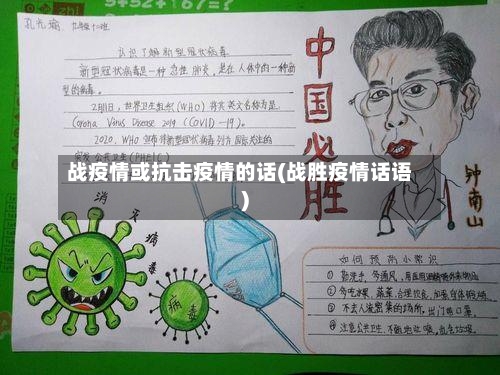 认识了解新型冠状病毒
新型冠状病毒是一种急性肺炎,是在人体中的一种新
型的病毒。
2月11日,世界卫生组织(WHO)将其英文名称为是
Corona Virus Disease 2019 (COVID-19)。
2020. WHO 宣布将新型冠状病毒列为国际关注的
突发公共卫生(PHEIC)
中国必胜
战疫情或抗击疫情的话(战胜疫情话语
)
钟南山
消灭病毒
病毒
如何预防小常识
① 勤洗手,多通风,
② 多吃水果,蔬菜,合理饮食,加强身体锻炼
③ 不去人流密集的场所,出门戴口罩。
④ 注意公共卫生,不随地吐痰,